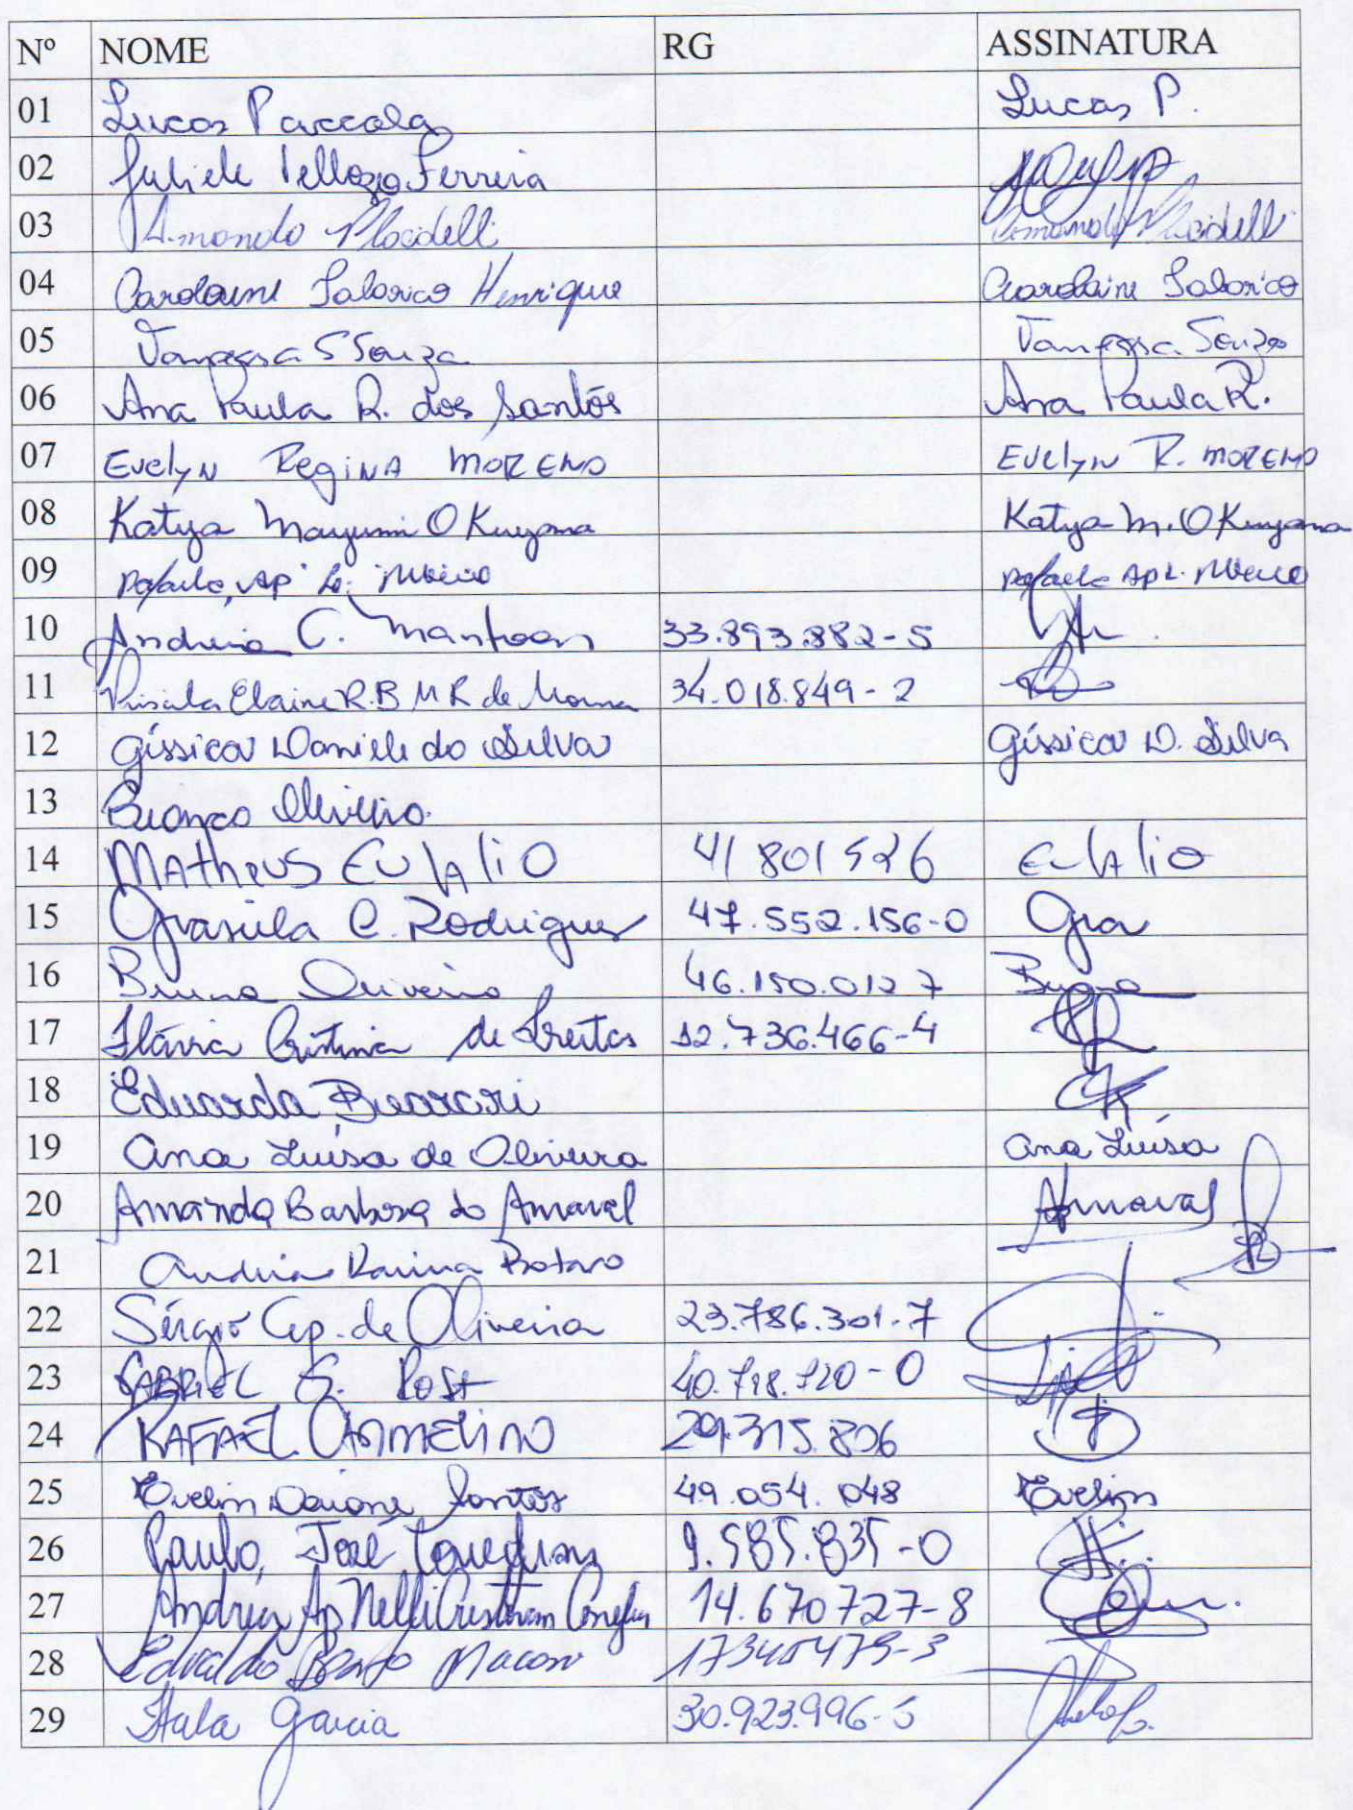 Nº NOME RG ASSINATURA
01 Lucas Paccola Lucas P.
02 Juliele Tellozo Ferreira
03 Amando Placidelli Amando Placidelli
04 Carolaine Salorico Henrique Carolaine Salorico
05 Vanessa S Souza Vanessa Souza
06 Ana Paula R. dos Santos Ana Paula R.
07 Evelyn Regina Moreno Evelyn R. Moreno
08 Katya Mayumi Okuyama Katya M. Okuyama
09 Rafaela Ap L. Rafaela Ap L.
10 Andreia C. Mantoan 33.893.882-5
11 Priscila Elaine R.B M R de 34.018.849-2
12 Géssica Daniele da Silva Géssica D. Silva
13 Oliveira
14 Matheus Eulalio 41 801 526 Eulalio
15 Grasiela C. Rodrigues 47.552.156-0 Gra
16 Bruna Oliveira 46.150.012 7 Bruna
17 Flávia Cristina de Freitas 12.736.466-4
18 Eduarda
19 Ana Luisa de Oliveira Ana Luisa
20 Amanda Barbosa do Amaral Amaral
21 Andreia Karina
22 Sérgio Ap. de Oliveira 23.786.301-7
23 Gabriel G. Post 40.718.720-0
24 Rafael Carmelino 29.315.806
25 Evelin Daiane Santos 49.054.048 Evelin
26 Paulo José 9.585.835-0
27 Andrea Ap Nelli 14.670727-8
28 Edvaldo
29 Itala Garcia 30.923.996-5